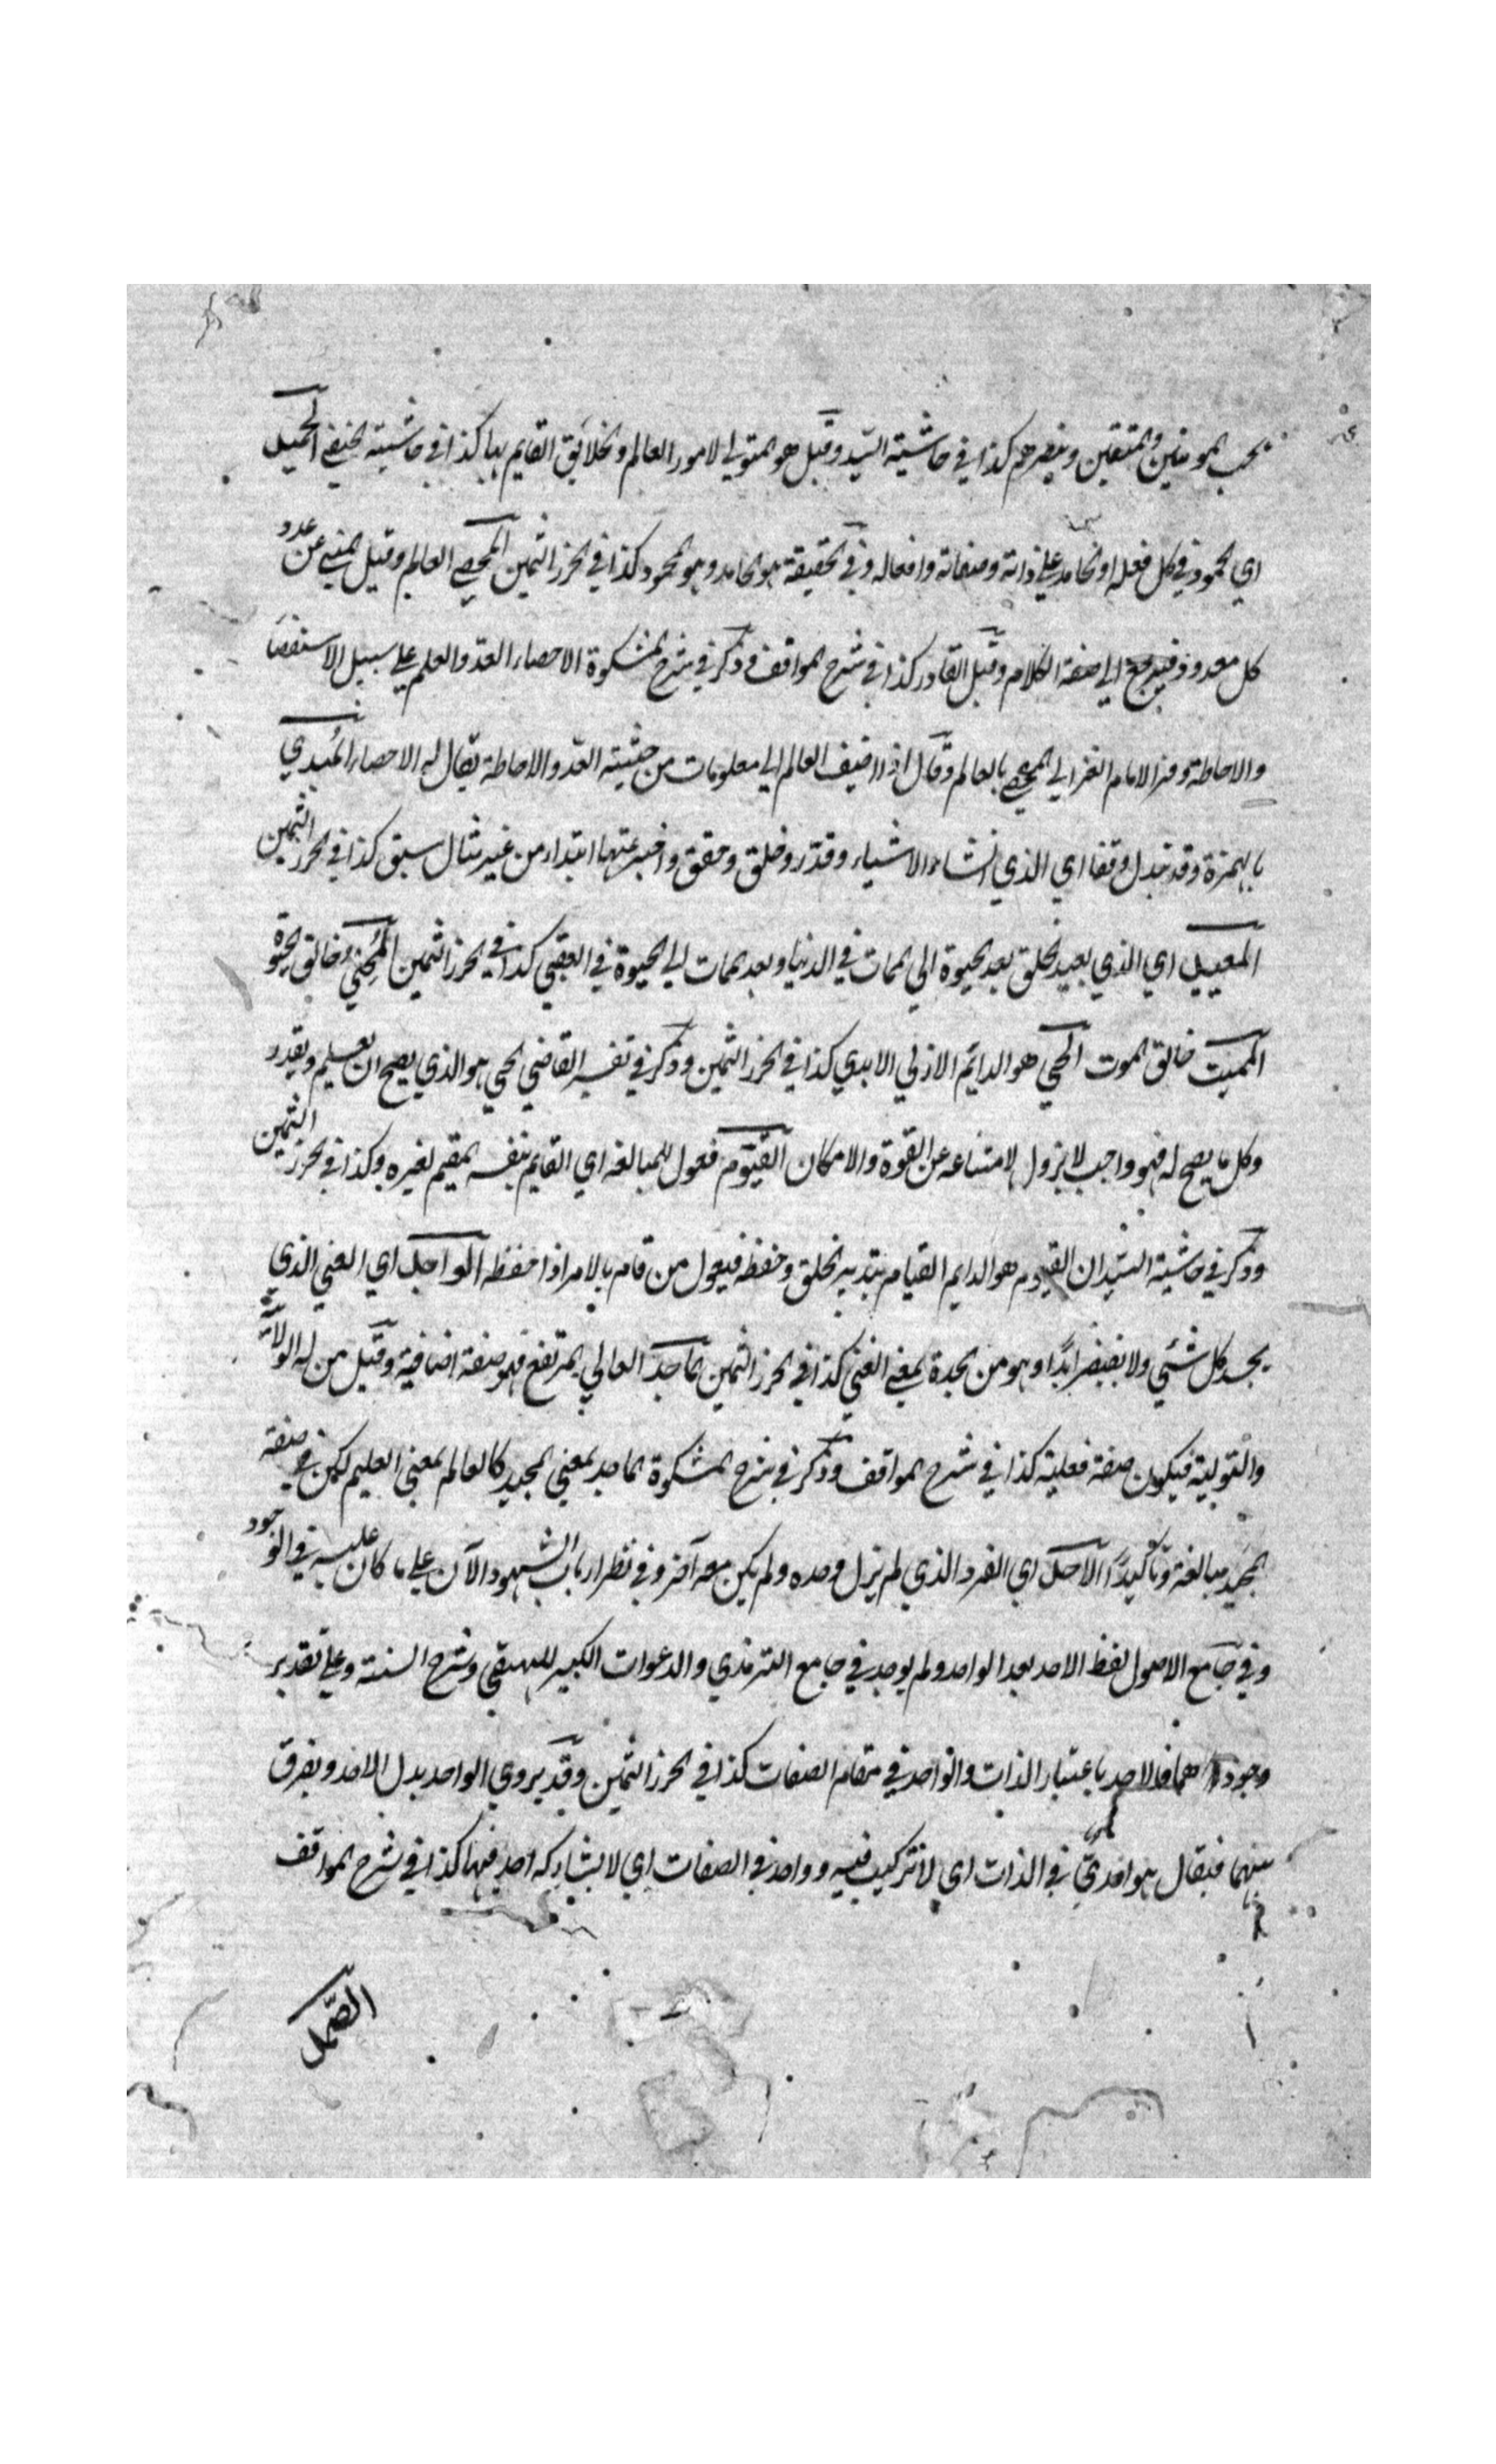 يحب المومنين والمتقين وينصرهم كذا في حاشية السيد وقيل هو المتولي لامور العالم والخلائق القايم بها كذا في حاشية الحنيفي الحميد
اي المحمود في كل فعله او الحامد علي ذاته وصفاته وافعاله وفي الحقيقة هو الحامد وهو المحمود كذا في الحرز الثمين المحصي العالم وقيل المنبي عن عدد
كل معدود فيرجع الي صفة الكلام وقيل القادر كذا في شرح المواقف وذكر في شرح المشكوة الاحصاء العد والعلم علي سبيل الاستقصا
والاحاطة وفسر الامام الغزالي المحصي بالعالم وقال اذا اضيف العالم الي معلومات من حيثية العد والاحاطة يقال له الاحصاء المبدي
بالهمزة وقد تبدل وقفا اي الذي انشاء الاشياء وقدر وخلق وحقق واخترعتها ابتداء من غير مثال سبق كذا في الحرز الثمين
المعيد اي الذي يعيد الخلق بعد الحيوة الي الممات في الدنيا وبعد الممات الي الحيوة في العقبي كذا في الحرز الثمين المحيي خالق الحيوة
المميت خالق الموت الحي هو الدايم الازلي الابدي كذا في الحرز الثمين وذكر في تفسير القاضي الحي هو الذي يصح ان يعلم ويقدر
وكل ما يصح له فهو واجب لا يزول لامتناعه عن القوة والامكان القيوم فعول للمبالغة اي القايم بنفسه المقيم لغيره وكذا في الحرز الثمين
وذكر في حاشية السيد ان القيوم هو الدايم القيام بتدبير الخلق وحفظه فيعول من قام بالامر اذا حفظه الواجد اي الغني الذي
يجد كل شئي ولا يفتقر ابدًا وهو من الجدة بمعني الغني كذا في الحرز الثمين الماجد العالي المرتفع فهو صفة اضافية وقيل من له الولاية
والتولية فيكون صفة فعلية كذا في شرح المواقف وذكر في شرح المشكوة الماجد بمعني المجيد كالعالم بمعني العليم لكن في صفة
المجيد مبالغة وتأكيدًا الاحد اي الفرد الذي لم يزل وحده ولم يكن معه آخر وفي نظر ارباب الشهود الآن علي ما كان عليه في الوجود
وفي جامع الاصول لفظ الاحد بعد الواحد ولم يوجد في جامع الترمذي والدعوات الكبير للبيهقي وشرح السنة وعلي تقدير
وجودهما فالاحد باعتبار الذات والواحد في مقام الصفات كذا في الحرز الثمين وقد يروي الواحد بدل الاحد ويفرق
بينهما فيقال هو احدي في الذات اي لا تركيب فيه وواحد في الصفات اي لا يشاركه احد فيها كذا في شرح المواقف
الصمد